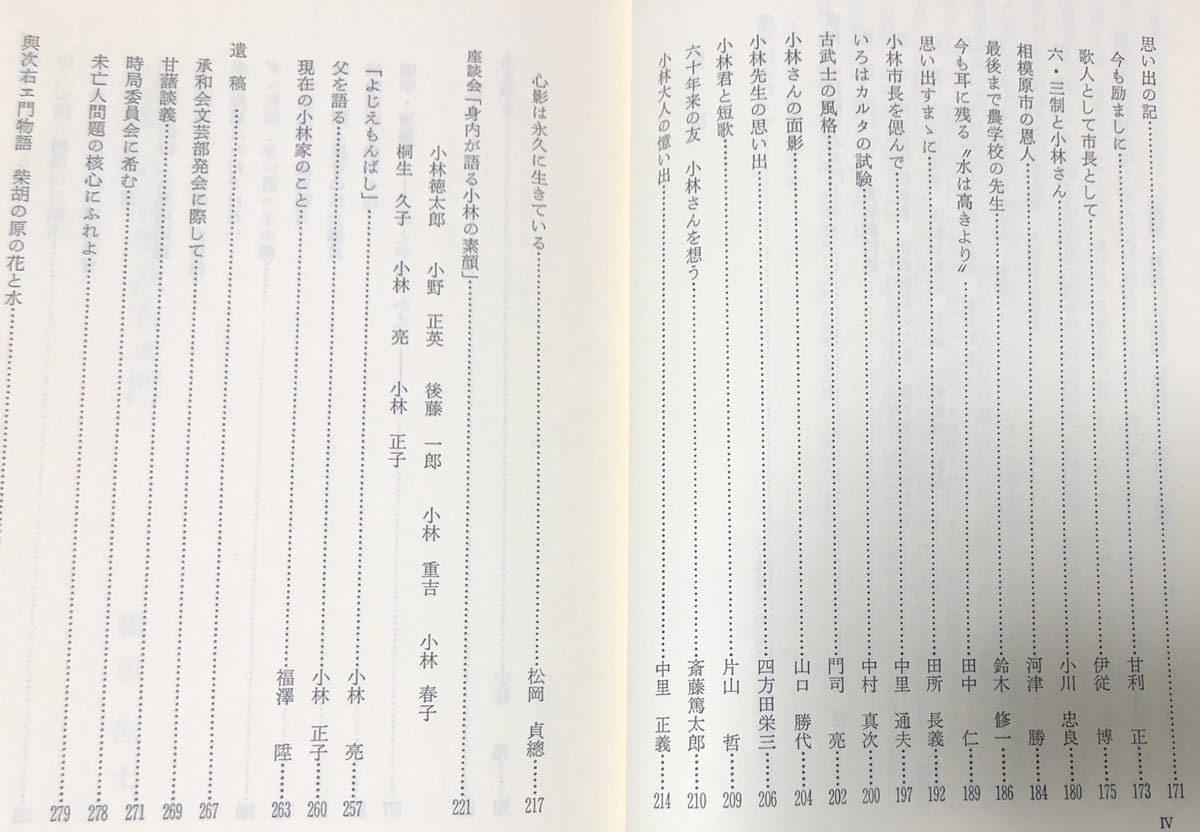 思い出の記……171
今も励ましに……甘利 正……173
歌人として市長として……伊従 博……175
六・三制と小林さん……小川 忠良……180
相模原市の恩人……河津 勝……184
最後まで農学校の先生……鈴木 修一……186
今も耳に残る〝水は高きより〟……田中 仁……189
思い出すまゝに……田所 長義……192
小林市長を偲んで……中里 通夫……197
いろはカルタの試験……中村 真次……200
古武士の風格……門司 亮……202
小林さんの面影……山口 勝代……204
小林先生の思い出……四方田栄三……206
小林君と短歌……片山 哲……209
六十年来の友 小林さんを想う……斎藤篤太郎……210
小林大人の憶い出……中里 正義……214
Ⅳ
心影は永久に生きている……松岡 貞總……217
座談会「身内が語る小林の素顔」……221
小林徳太郎 小野 正英 後藤 一郎 小林 重吉 小林 春子
桐生 久子 小林 亮 小林 正子
「よじえもんばし」……小林 亮……257
父を語る……小林 正子……260
現在の小林家のこと……福澤 陞……263
遺 稿……
承和会文芸部発会に際して……267
甘藷談義……269
時局委員会に希む……271
未亡人問題の核心にふれよ……278
與次右ヱ門物語 柴胡の原の花と水……279